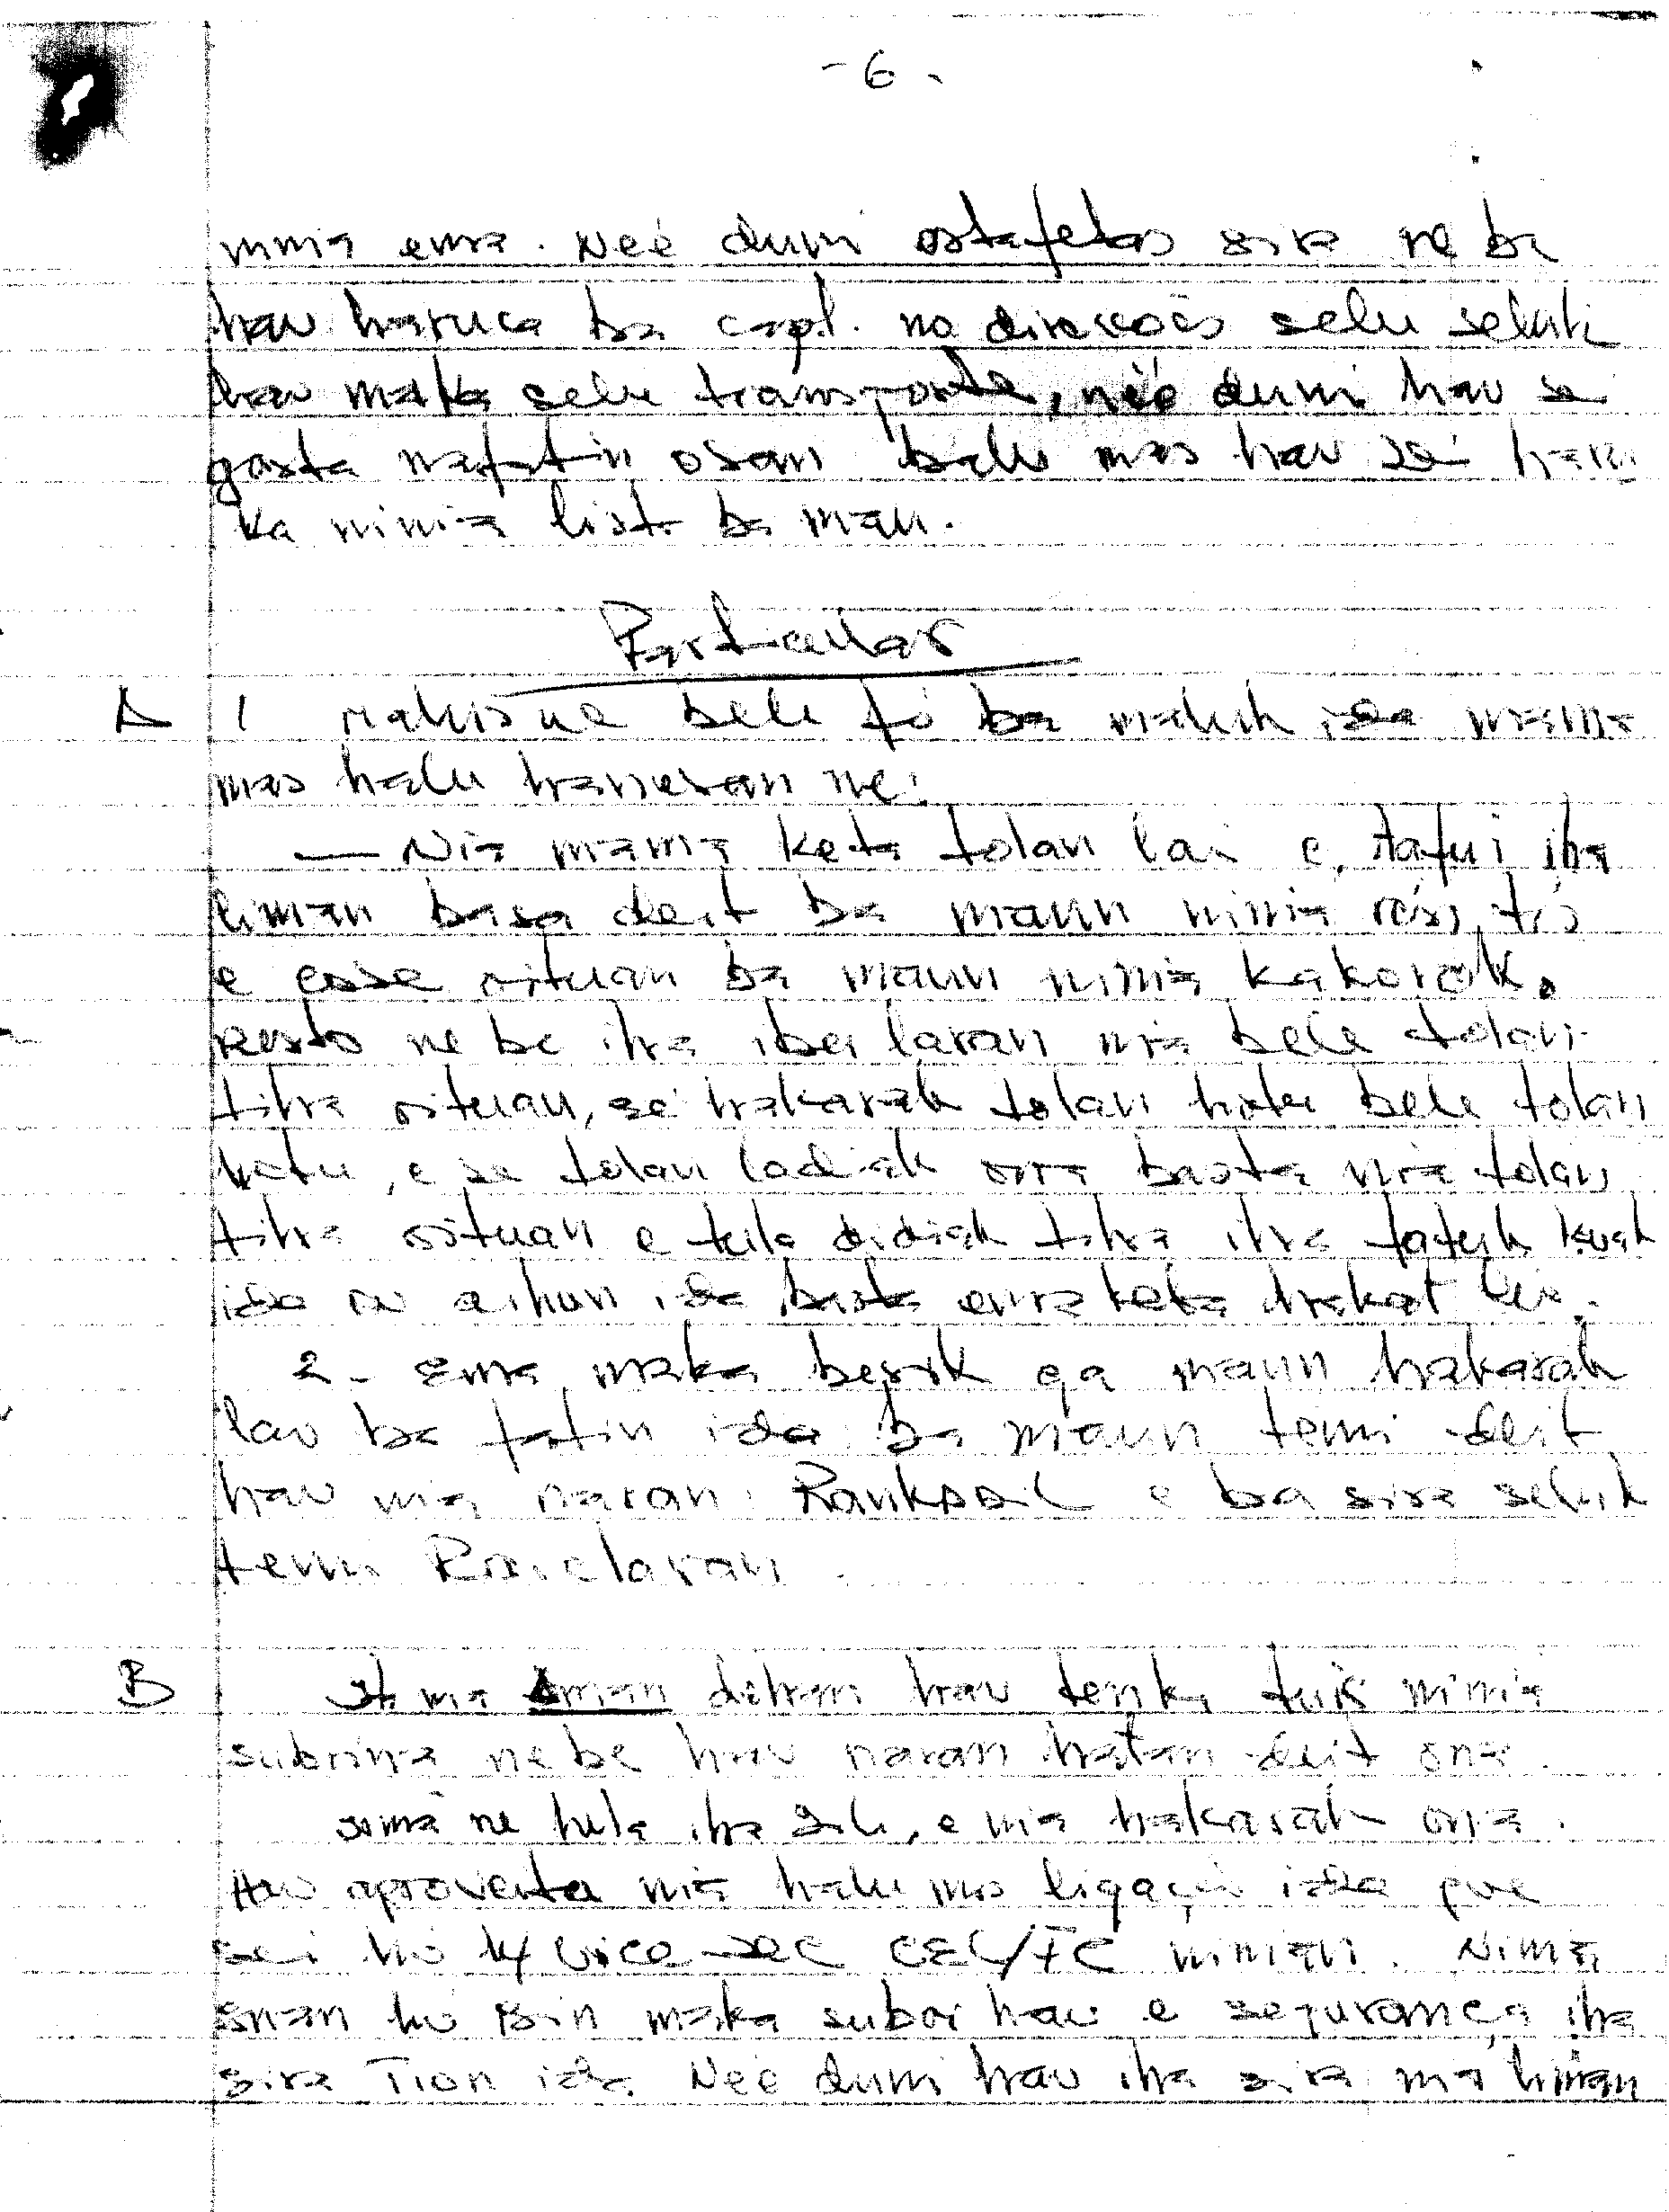 - 6 -
ninia ema. Neé duni estafetas sira ne be
hau haruca ba capl. no direcoês selu seluk
hau maka selu transporte, neé duni hau sei
gasta nafatin osan balu mas hau sei haru
ka ninia lista ba maun.
Particular
A 1 ne bele fó ba maluk ida nama
mas halu hanesan ne:
— Nia mama keta tolan lai e, tafui iha
liman basa deit ba maun ninia
e essa situan ba maun ninia kakorok.
resto ne be iha ibu laran nia bele tolan
tiha situan, se hakarak tolan hotu bele tolan
hotu, e se tolan ladiak ona basta nia tolan
tiha situan e tula didiak tiha iha fatuk kuak
ida ou aihun ida basta ema keta hakat liu.
2 - Ema maka besik ga maun hakarak
lau ba fatin ida ba maun temi deit
hau nia naran: e ba sira seluk
temi
B nia aman dehan hau tenki tuir ninia
subrinha ne be hau naran hatan deit ona.
ne hela iha Dili, e nia hakarak ona.
Hau aproveita nia halu mos ligação ida que
sei ho vice-sec CEL/FC niman. Ninia
inan ho Bin maka suboi hau e segurança iha
sira Tion ida. Neé duni hau iha sira nia liman